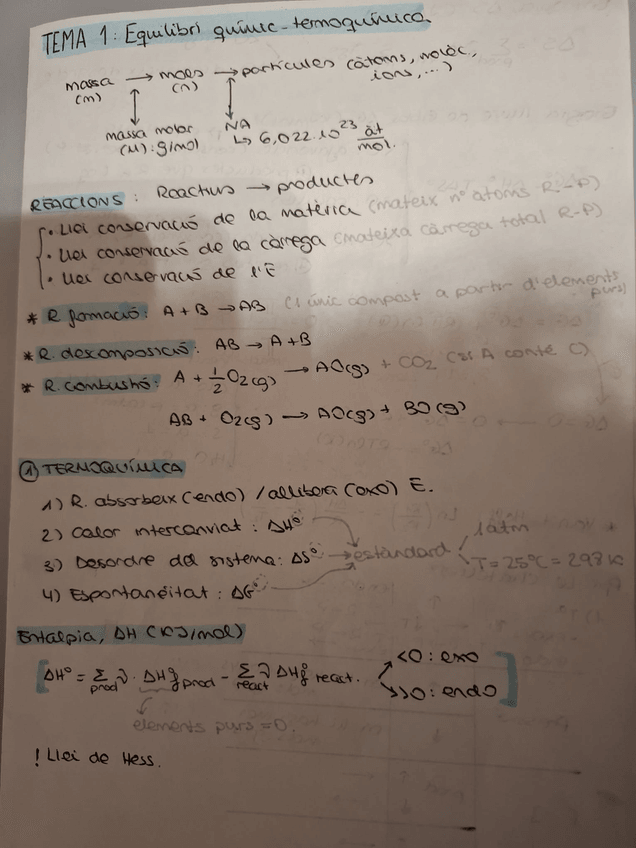 TEMA 1: Equilibri químic-termoquímica
massa (m) → mols (n) → partícules (àtoms, molèc, ions, ...)
massa molar (M): g/mol
NA ↳ 6,022·10²³ àt/mol.
REACCIONS: Reactius → productes
· Llei conservació de la matèria (mateix nº atoms R-P)
· Llei conservació de la càrrega (mateixa càrrega total R-P)
· Llei conservació de l'E
* R. formació: A + B → AB (1 únic compost a partir d'elements purs)
* R. descomposició: AB → A + B
* R. combustió: A + 1/2 O₂(g) → AO(g) + CO₂ (si A conté C)
AB + O₂(g) → AO(g) + BO(g)
① TERMOQUÍMICA
1) R. absorbeix (endo) / allibera (exo) E.
2) Calor intercanviat: ΔH°
3) Desordre del sistema: ΔS° → estàndard 1atm T = 25ºC = 298 K
4) Espontaneïtat: ΔG°
Entalpia, ΔH (KJ/mol)
[ΔH° = Σprod ν · ΔHf° prod - Σreact ν ΔHf° react. <0: exo >0: endo]
elements purs = 0.
! Llei de Hess.